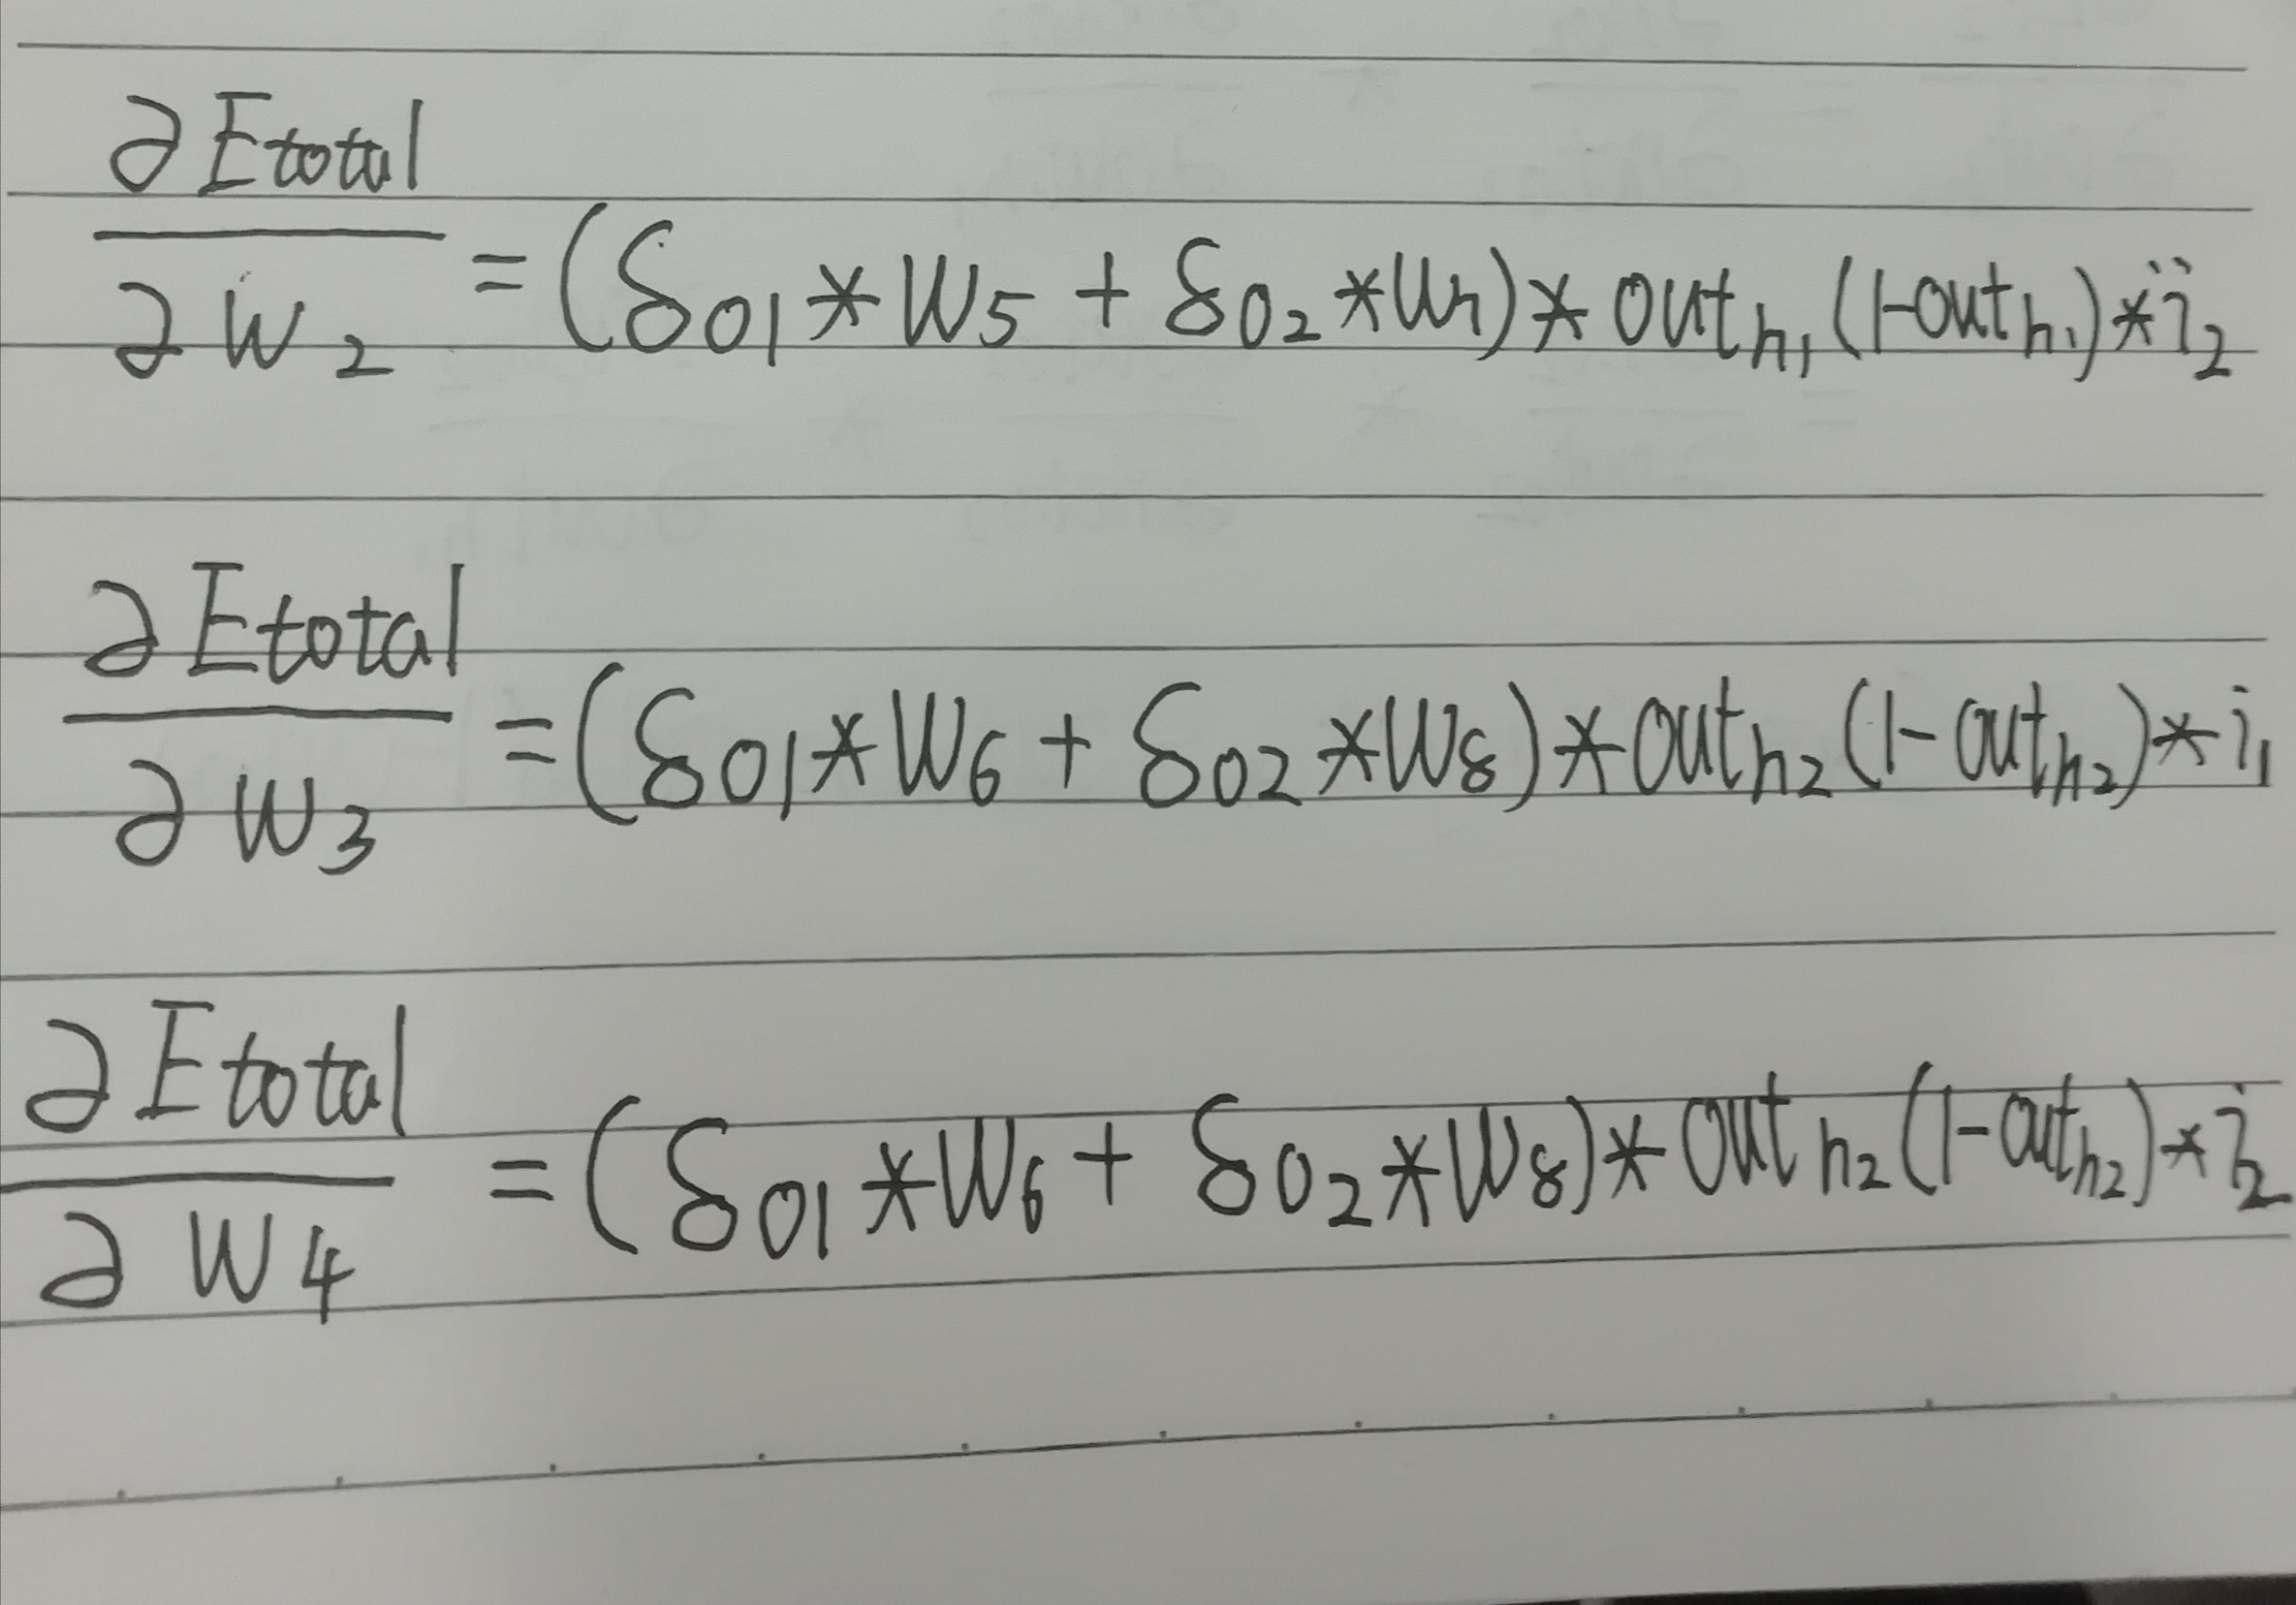 ∂Etotal
∂w₂ = (δo1 * w5 + δo2 * w7) * outh1 (1-outh1) * i2
∂Etotal
∂w3 = (δo1 * w6 + δo2 * w8) * outh2 (1-outh2) * i1
∂Etotal
∂w4 = (δo1 * w6 + δo2 * w8) * outh2 (1-outh2) * i2